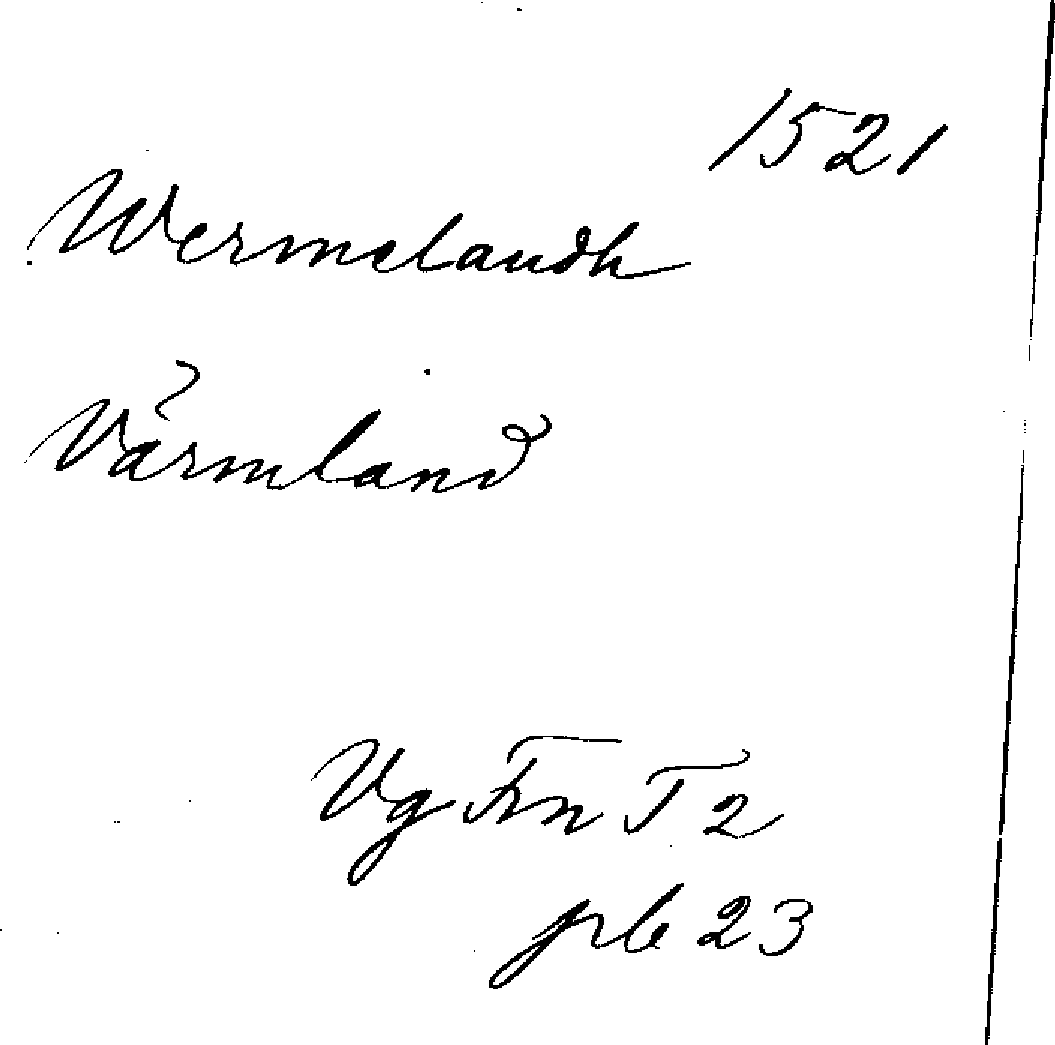 1521
Wermelandh
Värmland
Vg Frn T 2
prb 23